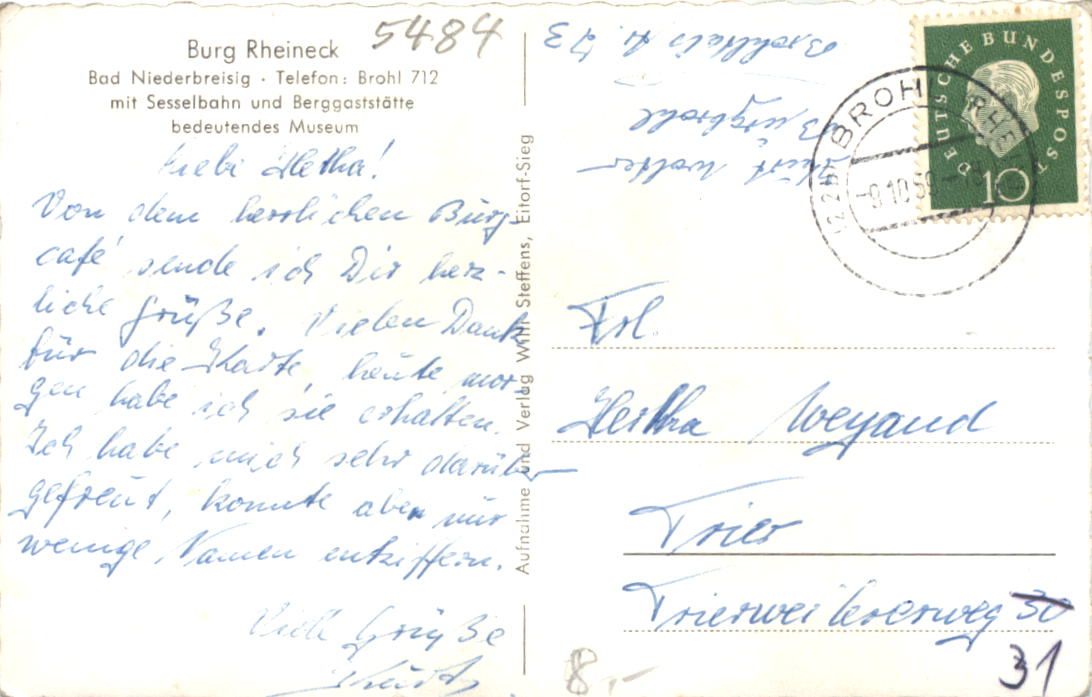 Burg Rheineck
5484
Bad Niederbreisig · Telefon: Brohl 712
mit Sesselbahn und Berggaststätte
bedeutendes Museum
Liebe Hertha!
Von dem herrlichen Burg-
café sende ich Dir herz-
liche Grüße. Vielen Dank
für die Karte, heute mor-
gen habe ich sie erhalten.
Ich habe mich sehr darüber
gefreut, konnte aber nur
wenige Namen entziffern.
Viele Grüße
Kurt
Aufnahme und Verlag Willi Steffens, Eitorf-Sieg
Kurt Wolter
Burgbrohl
Brohltalstr. 73
DEUTSCHE BUNDESPOST
10
(22b) BROHL (RHEIN)
-9.10.59.-18
Frl.
Hertha Weyand
Trier
Triererweilererweg 30
31
8.-